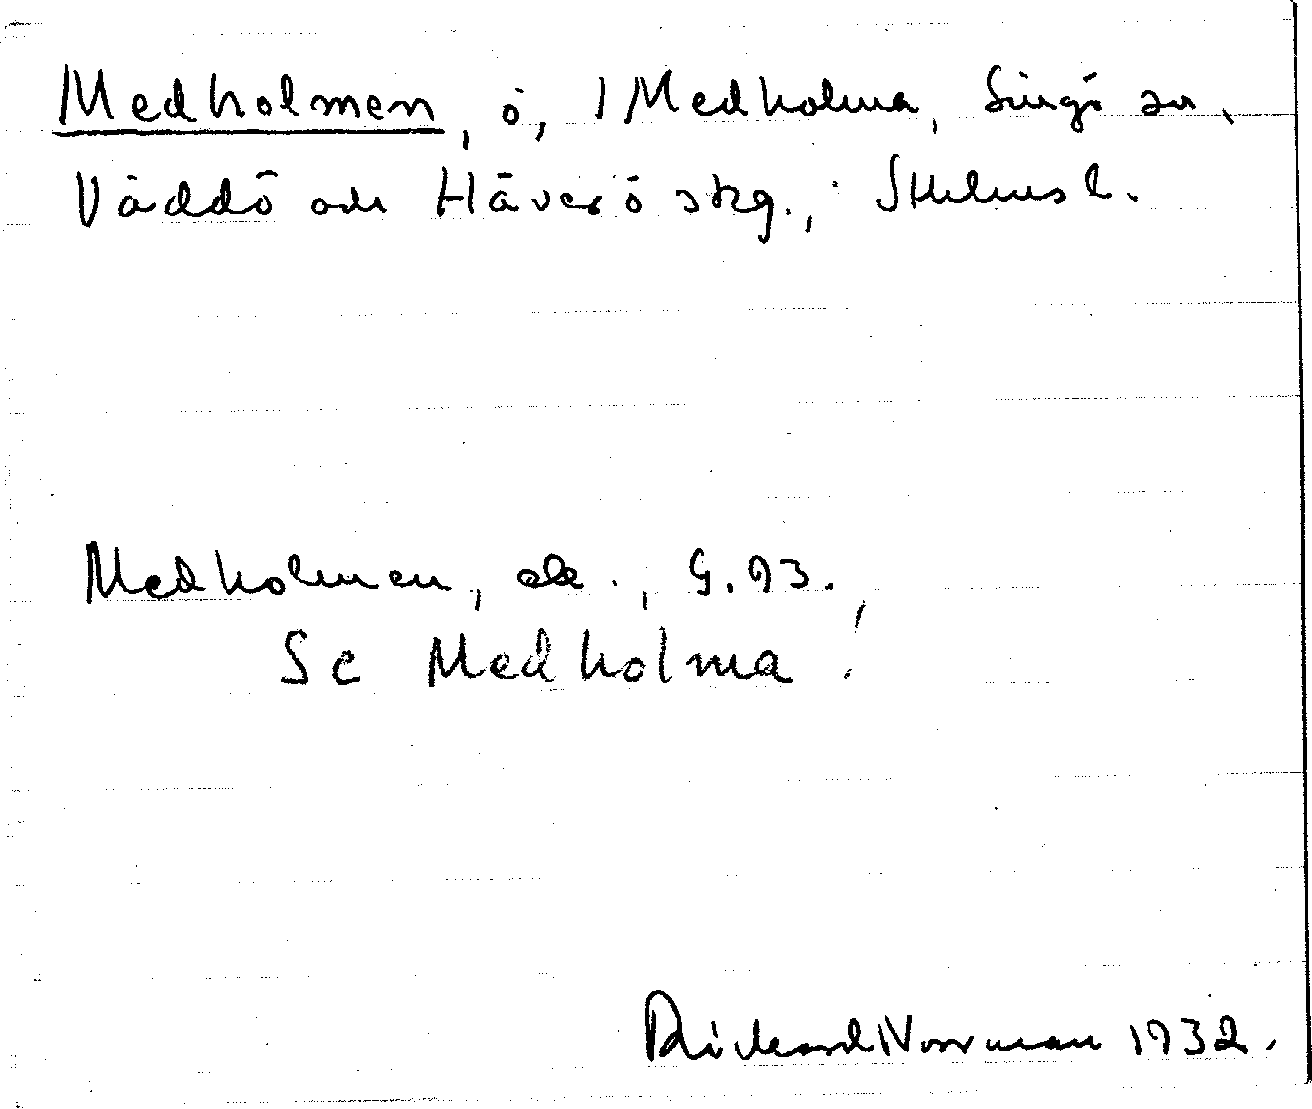 Medholmen, ö, / Medholma, Singö sn,
Väddö och Häverö skg., Sthlms l.
Medholmen, ek., G.93.
Se Medholma!
Rickard Norrman 1932.